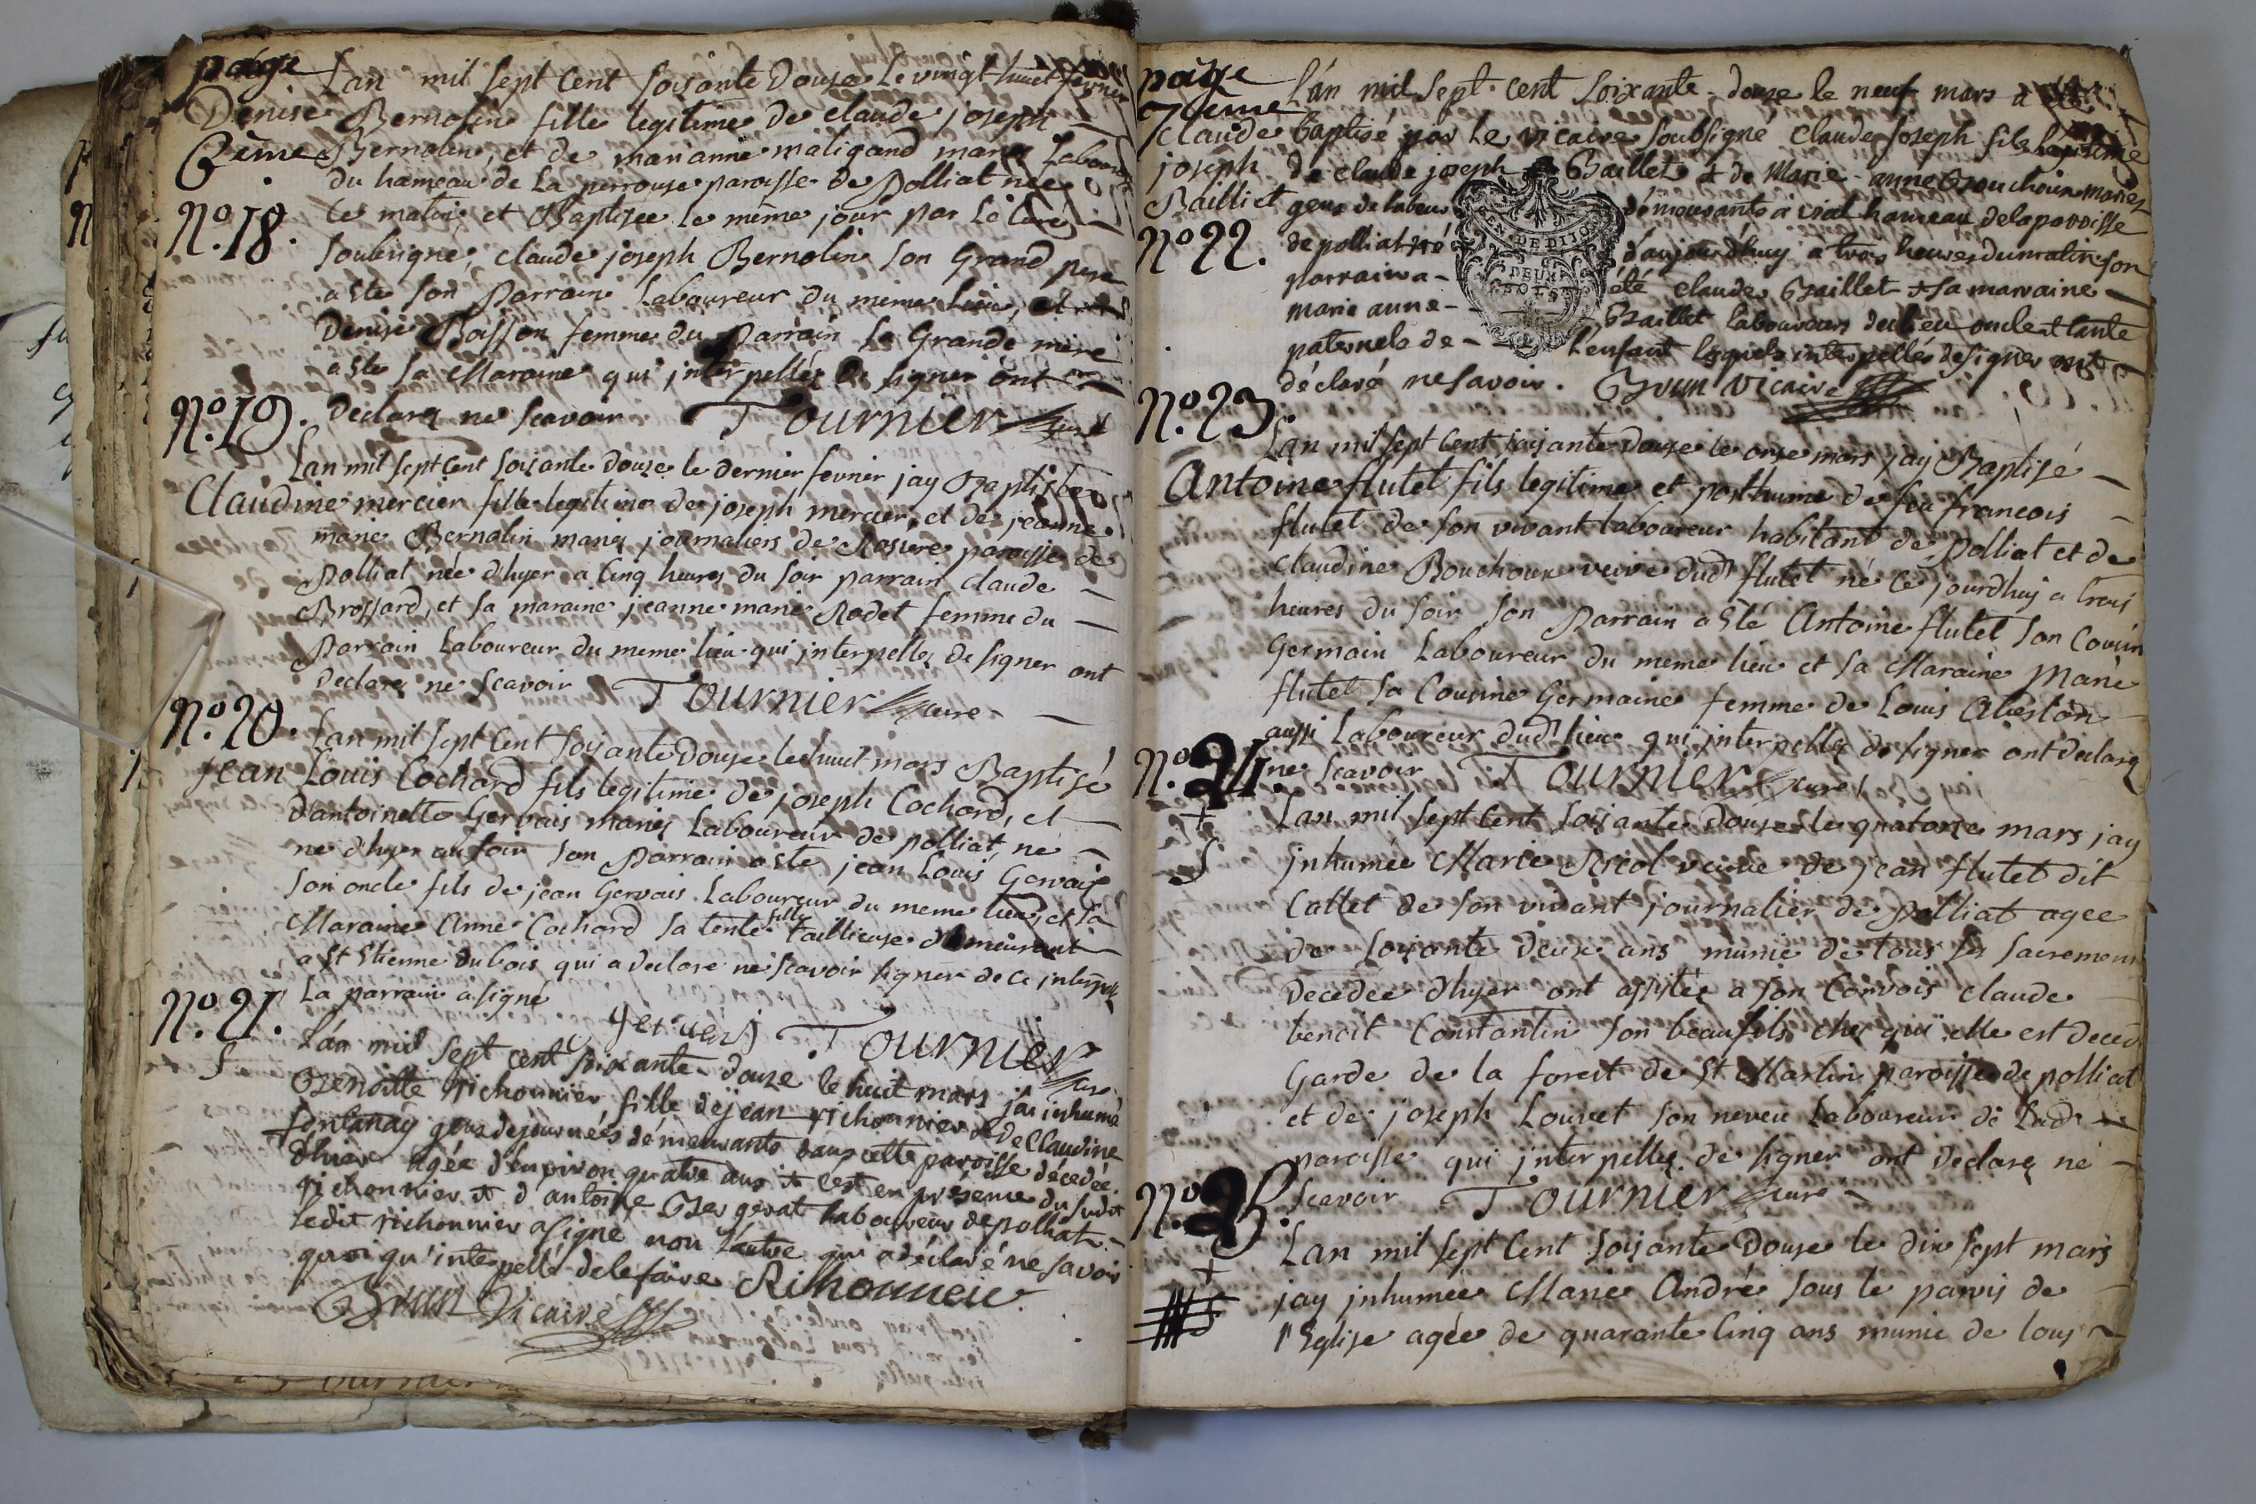 page
6ème
L'an mil sept cent soixante Douze le vingt huit fevrier
Denise Bernolin fille legitime de claude joseph
Bernolin, et de marianne maligand mariez Laboureur
du hameau de La perrouse paroisse de Polliat née
Ce matin et Baptisée le même jour par le Curé
soubsigné, claude joseph Bernolin son Grand pere
a Ete son Parrain Laboureur du meme lieu, et
Denise Boisson femme du Parrain sa Grande mere
a Ete sa Maraine qui interpellez de signer ont
Declarez ne scavoir Tournier curé
No. 18.
No. 19.
Lan mil sept Cent soixante Douze le dernier fevrier jay Baptisée
Claudine mercier fille legitime de joseph mercier, et de jeanne
marie Bernolin mariez journaliers de Rosiere paroisse de
Polliat née d'hyer a Cinq heures du soir parrain claude
Brossard, et sa maraine jeanne marie Rodet femme du
Parrain Laboureur du meme lieu qui interpellez de signer ont
Declarez ne scavoir Tournier cure
No. 20.
Lan mil sept Cent soixante Douze le huit mars Baptisé
jean Louis Cochard fils legitime de joseph Cochard, et
d'antoinette Gervais mariez Laboureur de polliat né
d'hyer au soir son Parrain a Ete jean Louis Gervais
son oncle fils de jean Gervais Laboureur du meme lieu, et sa
Maraine Anne Cochard sa tente fille taillieuse demeurant
a St Etienne dubois qui a declare ne scavoir signer de ce interpellé
La parrain a signé
gervais j Tournier cure
No. 21.
L'an mil sept cent soixante-douze le huit mars j'ai inhumé
Benoitte richonnier fille de jean richonnier et de Claudine
fontanay gens de journées démeurants dans cette paroisse décedée
d'hier agée d'environ quatre ans et c'est en presence du susdit
richonnier et d'antoine Bergerat laboureur de polliat
ledit richonnier a signé non l'autre qui a déclaré ne savoir
quoiqu'interpellé de le faire Rihonneir
Brun Vicaire
page
7ème
L'an mil sept cent soixante-douze le neuf mars a été
baptisé par le vicaire soubsigné Claude joseph fils legitime
de claude joseph Baillet et de Marie-anne Bouchoux mariez
gens de labeur démeurants à vial hameau de la paroisse
de polliat né d'aujourd'huy a trois heures du matin son
parrain a- été claude Baillet et sa marraine
marie anne- Baillet laboureurs du lieu oncle et tante
paternels de- l'enfant lesquels interpellés de signer ont
déclaré ne savoir. Brun vicaire
Claude
joseph
Bailliet
No 22.
GEN. DE DIJO
DEUX
SOLS
No. 23.
Lan mil sept Cent soixante Douze le onze mars jay Baptisé
Antoine flutet fils legitime et posthume de feu francois
flutet de son vivant laboureur habitant de Polliat et de
Claudine Bouchoux veuve dudt flutet né ce jourdhuy a trois
heures du soir son Parrain a Eté Antoine flutet son Cousin
Germain Laboureur du meme lieu et sa Maraine Marie
flutet sa Cousine Germaine femme de Louis
aussi Laboureur dudt lieu qui interpellez de signer ont declarez
ne scavoir Tournier cure
No. 24.
Lan mil sept Cent soixante Douze le quatorze mars jay
inhumée Marie veuve de jean flutet dit
Callet de son vivant journalier de Polliat agee
de soixante deux ans munie de tous ses sacremens
Decedee d'hyer ont assistez a son Convois claude
benoit Constantin son beaufils chez qui elle est deced
Garde de la forest de St Martin paroisse de polliat
et de joseph Louvet son neveu Laboureur de Ladt
paroisse qui interpellez de signer ont Declarez ne
scavoir Tournier cure
No. 25.
Lan mil sept Cent soixante Douze le dix sept mars
jay inhumée Marie André sous le parvis de
l'Eglise agée de quarante Cinq ans munie de tous